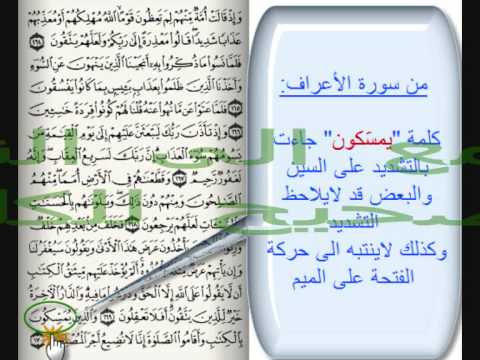 وَإِذْ قَالَتْ أُمَّةٌ مِّنْهُمْ لِمَ تَعِظُونَ قَوْمًا ٱللَّهُ مُهْلِكُهُمْ أَوْ مُعَذِّبُهُمْ
عَذَابًا شَدِيدًا قَالُوا۟ مَعْذِرَةً إِلَىٰ رَبِّكُمْ وَلَعَلَّهُمْ يَتَّقُونَ ١٦٤
فَلَمَّا نَسُوا۟ مَا ذُكِّرُوا۟ بِهِۦٓ أَنجَيْنَا ٱلَّذِينَ يَنْهَوْنَ عَنِ ٱلسُّوٓءِ
وَأَخَذْنَا ٱلَّذِينَ ظَلَمُوا۟ بِعَذَابٍۭ بَـِٔيسٍۭ بِمَا كَانُوا۟ يَفْسُقُونَ
١٦٥ فَلَمَّا عَتَوْا۟ عَن مَّا نُهُوا۟ عَنْهُ قُلْنَا لَهُمْ كُونُوا۟ قِرَدَةً خَـٰسِـِٔينَ
١٦٦ وَإِذْ تَأَذَّنَ رَبُّكَ لَيَبْعَثَنَّ عَلَيْهِمْ إِلَىٰ يَوْمِ ٱلْقِيَـٰمَةِ مَن
يَسُومُهُمْ سُوٓءَ ٱلْعَذَابِ إِنَّ رَبَّكَ لَسَرِيعُ ٱلْعِقَابِ وَإِنَّهُۥ
لَغَفُورٌ رَّحِيمٌ ١٦٧ وَقَطَّعْنَـٰهُمْ فِى ٱلْأَرْضِ أُمَمًا مِّنْهُمُ
وَمِنْهُمْ دُونَ ذَٰلِكَ وَبَلَوْنَـٰهُم بِٱلْحَسَنَـٰتِ
لَعَلَّهُمْ يَرْجِعُونَ ١٦٨ فَخَلَفَ مِنۢ بَعْدِهِمْ
يَأْخُذُونَ عَرَضَ هَـٰذَا ٱلْأَدْنَىٰ وَيَقُولُونَ سَيُغْفَرُ لَنَا
وَإِن يَأْتِهِمْ عَرَضٌ مِّثْلُهُۥ يَأْخُذُوهُ أَلَمْ يُؤْخَذْ عَلَيْهِم مِّيثَـٰقُ ٱلْكِتَـٰبِ
أَن لَّا يَقُولُوا۟ عَلَى ٱللَّهِ إِلَّا ٱلْحَقَّ وَدَرَسُوا۟ مَا فِيهِ وَٱلدَّارُ ٱلْـَٔاخِرَةُ
خَيْرٌ لِّلَّذِينَ يَتَّقُونَ أَفَلَا تَعْقِلُونَ ١٦٩ وَٱلَّذِينَ يُمَسِّكُونَ
بِٱلْكِتَـٰبِ وَأَقَامُوا۟ ٱلصَّلَوٰةَ إِنَّا لَا نُضِيعُ أَجْرَ
من سورة الأعراف:
كلمة "يمسّكون" جاءت
بالتشديد على السين
والبعض قد لايلاحظ
التشديد
وكذلك لاينتبه الى حركة
الفتحة على الميم